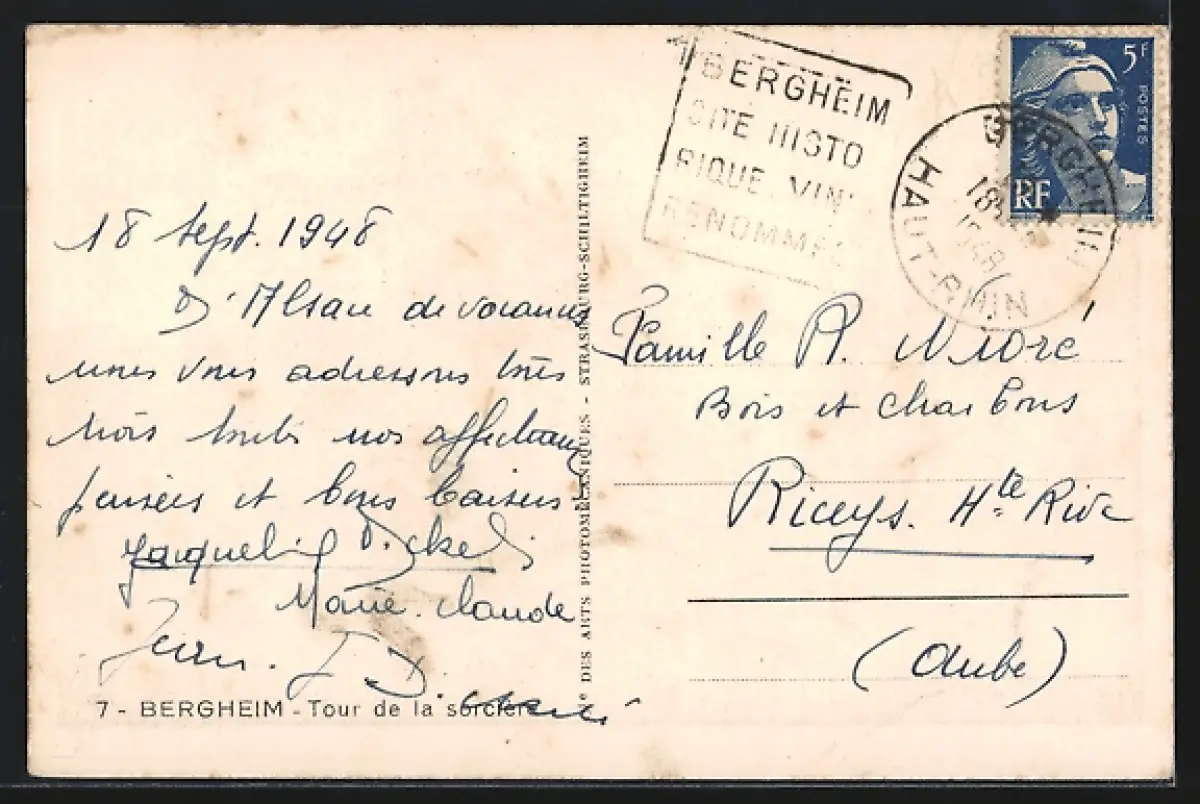 BERGHEIM
CITÉ HISTO
RIQUE. VINS
RENOMMÉS
5F
POSTES
RF
BERGHEIM
18
1948
HAUT-RHIN
18 Sept. 1948
D'Alsace de vacances
nous vous adressons tous
trois toutes nos affectueuses
pensées et bons baisers
Jacqueline
Marie.Claude
Jean.
7 - BERGHEIM - Tour de la sorcière
DES ARTS PHOTOMÉCANIQUES - STRASBOURG-SCHILTIGHEIM
Famille A. Nioré
Bois et Charbons
Riceys. Hte Rive
(Aube)